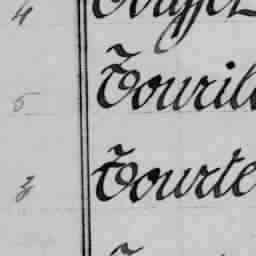 4
5 Touril
3 Tourte